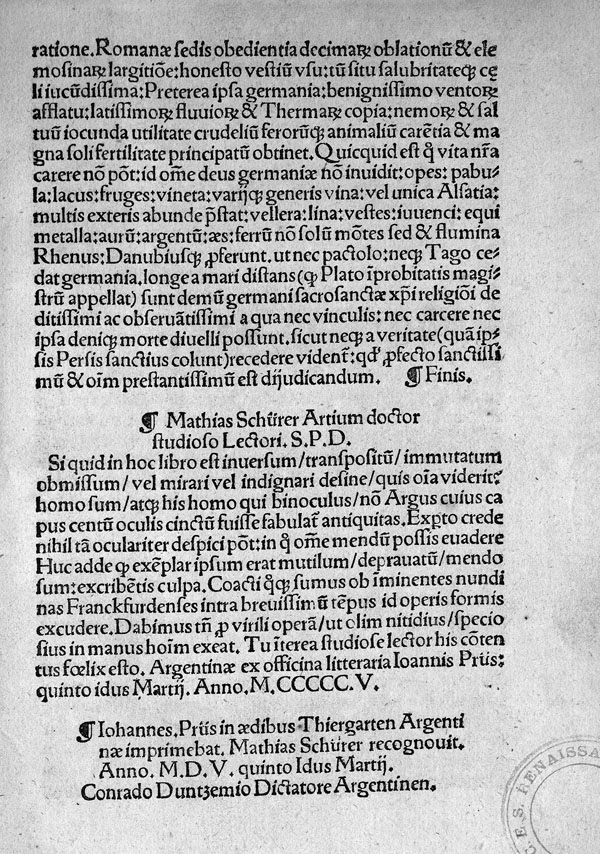 ratione. Romanæ sedis obedientia decimaꝝ oblationũ & ele
mosinaꝝ largitiõe: honesto vestiũ vsu: tũ situ salubritateqꝫ cę
li iucũdissima: Preterea ipsa germania: benignissimo ventoꝝ
afflatu: latissimoꝝ fluuioꝝ & Thermaꝝ copia: nemoꝝ & sal
tuũ iocunda utilitate crudeliũ ferorũqꝫ animaliũ carẽtia & ma
gna soli fertilitate principatũ obtinet. Quicquid est ꝙ vita nr̃a
carere nõ põt: id om̃e deus germaniæ nõ inuidit: opes: pabu
la: lacus: fruges: vineta: varijqꝫ generis vina: vel unica Alsatia:
multis exteris abunde p̃stat: vellera: lina: vestes: iuuenci: equi
metalla: aurũ: argentũ: æs: ferrũ nõ solũ mõtes sed & flumina
Rhenus: Danubiusqꝫ ꝓferunt. ut nec pactolo: neqꝫ Tago ce
dat germania. longe a mari distans (qꝫ Plato ĩprobitatis magi
strũ appellat) sunt demũ germani sacrosanctæ xp̃i religiõi de
ditissimi ac obseruãtissimi a qua nec vinculis: nec carcere nec
ipsa deniqꝫ morte diuelli possunt. sicut neqꝫ a veritate (quã ip
sis Persis sanctius colunt) recedere vident̃: qd' ꝓfecto sanctissi
mũ & oĩm prestantissimũ est dijudicandum. ¶ Finis.
¶ Mathias Schürer Artium doctor
studioso Lectori. S. P. D.
Si quid in hoc libro est inuersum/transpositũ/immutatum
obmissum/vel mirari vel indignari desine/quis oĩa viderit:
homo sum/atqꝫ his homo qui binoculus/nõ Argus cuius ca
pus centũ oculis cinctũ fuisse fabulat̃ antiquitas. Exp̃to crede
nihil tã oculariter despici põt: in ꝙ om̃e mendũ possis euadere
Huc adde ꝙ exẽplar ipsum erat mutilum/deprauatũ/mendo
sum: excribẽtis culpa. Coacti q̃qꝫ sumus ob iminentes nundi
nas Franckfurdenses intra breuissimũ tẽpus id operis formis
excudere. Dabimus tñ ꝓ virili operã/ut olim nitidius/specio
sius in manus hoĩm exeat. Tu ĩterea studiose lector his cõten
tus fœlix esto. Argentinæ ex officina litteraria Ioannis Prüs:
quinto idus Martij. Anno. M. CCCCC. V.
¶ Iohannes. Prüs in ædibus Thiergarten Argenti
næ imprimebat. Mathias Schürer recognouit.
Anno. M. D. V. quinto Idus Martij.
Conrado Duntzemio Dictatore Argentinen.
C. E. S. RENAISSA